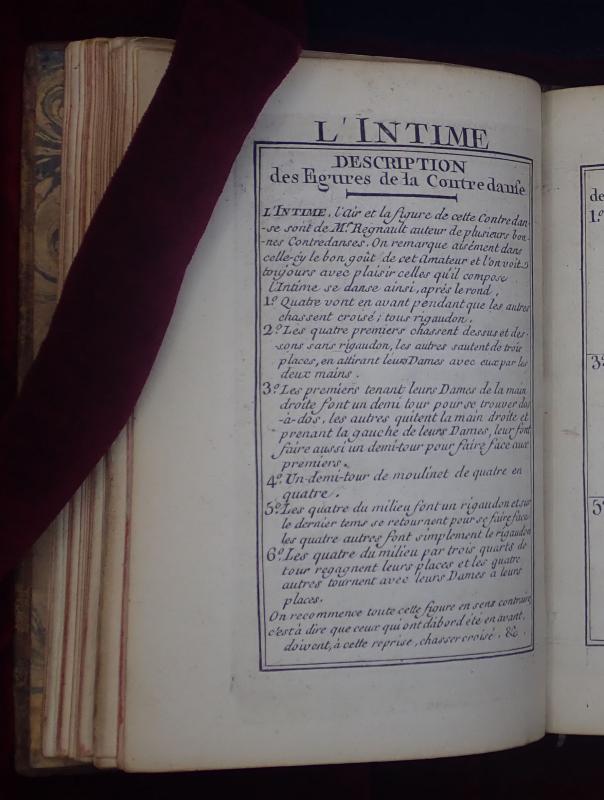 L'INTIME
DESCRIPTION
des Figures de la Contredanse
L'INTIME, l'air et la figure de cette Contredan-
-se sont de Mr. Regnault auteur de plusieurs bon-
-nes Contredanses. On remarque aisément dans
celle-cy le bon goût de cet Amateur et l'on voit
toujours avec plaisir celles qu'il compose
l'Intime se danse ainsi, après le rond.
1.º Quatre vont en avant pendant que les autres
chassent croisé; tous rigaudon.
2.º Les quatre premiers chassent dessus et des-
-sous sans rigaudon, les autres sautent de trois
places, en attirant leurs Dames avec eux par les
deux mains.
3.º Les premiers tenant leurs Dames de la main
droite font un demi tour pour se trouver dos
-à-dos, les autres quitent la main droite et
prenant la gauche de leurs Dames, leur font
faire aussi un demi-tour pour faire face aux
premiers.
4.º Un demi-tour de moulinet de quatre en
quatre.
5.º Les quatre du milieu font un rigaudon et sur
le dernier tems se retournent pour se faire face
les quatre autres font simplement le rigaudon
6.º Les quatre du milieu par trois quarts de
tour regagnent leurs places et les quatre
autres tournent avec leurs Dames à leurs
places.
On recommence toute cette figure en sens contraire,
c'est à dire que ceux qui ont d'abord été en avant,
doivent, à cette reprise, chasser croisé. &c.
de
1.º
3º
5º